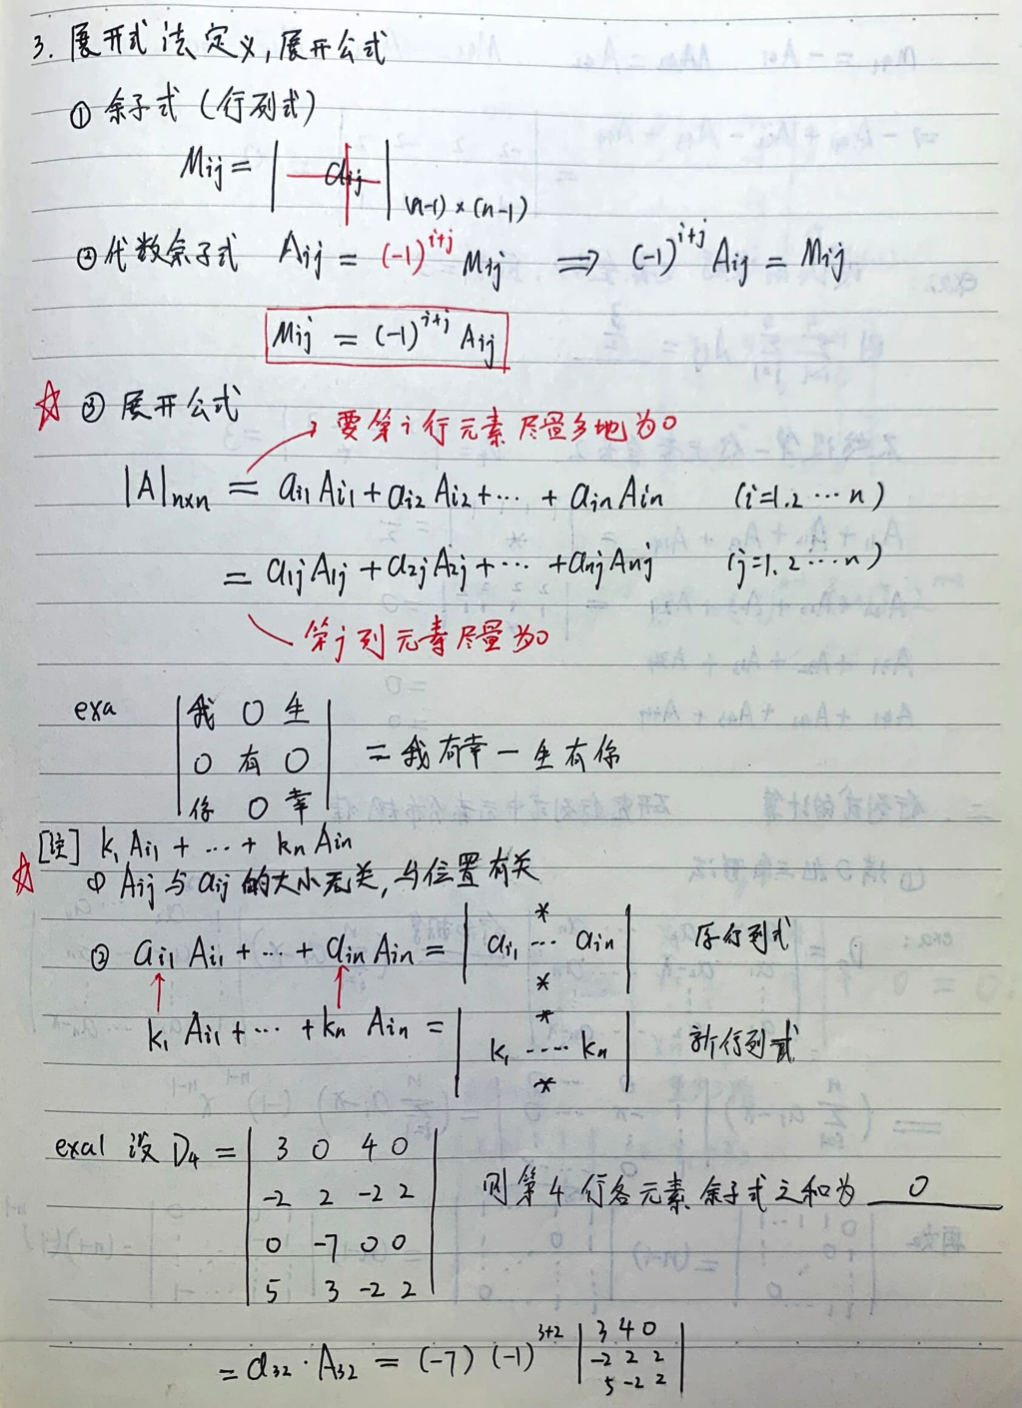 3. 展开式法定义,展开公式
① 余子式 (行列式)
Mij = | aij | (n-1) × (n-1)
②代数余子式 Aij = (-1)^{i+j} Mij ⟹ (-1)^{i+j} Aij = Mij
Mij = (-1)^{i+j} Aij
☆ ③ 展开公式
要第i行元素尽量多地为0
|A|n×n = ai1 Ai1 + ai2 Ai2 + ··· + ain Ain (i=1.2 ··· n)
= a1j A1j + a2j A2j + ··· + anj Anj (j=1.2 ··· n)
第j列元素尽量为0
exa | 我 0 生 |
| 0 有 0 | = 我有幸一生有你
| 你 0 幸 |
[注] k1 Ai1 + ··· + kn Ain
☆ ① Aij 与 aij 的大小无关,与位置有关
② ai1 Ai1 + ··· + ain Ain = | * ai1 ··· ain * | 原行列式
k1 Ai1 + ··· + kn Ain = | * k1 ···· kn * | 新行列式
exa1 设 D4 = | 3 0 4 0 |
| -2 2 -2 2 | 则第4行各元素余子式之和为 0
| 0 -7 0 0 |
| 5 3 -2 2 |
= a32 · A32 = (-7) (-1)^{3+2} | 3 4 0 |
| -2 2 2 |
| 5 -2 2 |